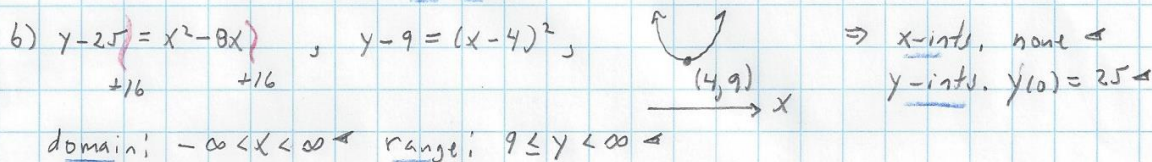 b) y-25 = x²-8x , y-9 = (x-4)², ⇒ x-ints. none
+16 +16 (4,9) y-ints. y(0) = 25
x
domain: -∞<x<∞ range: 9≤y<∞